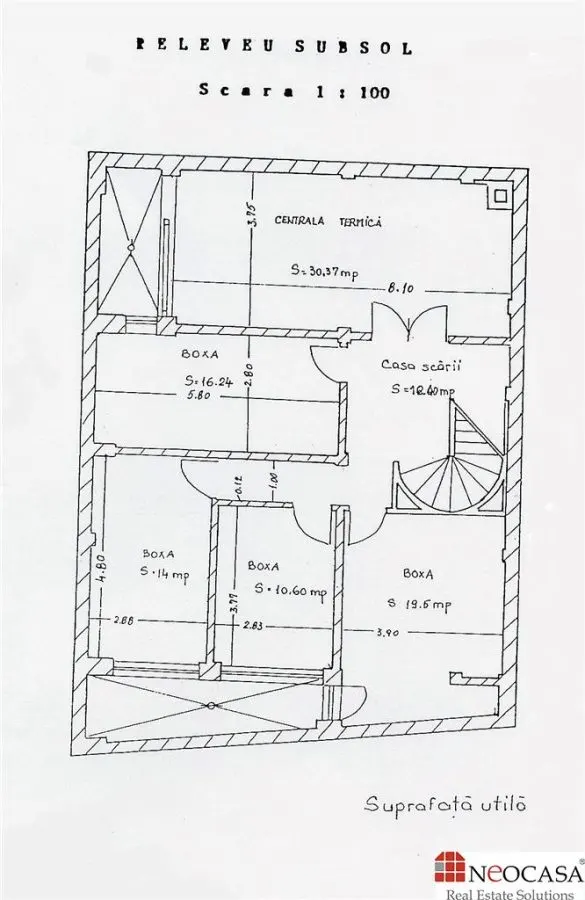 RELEVEU SUBSOL
Scara 1:100
3.75
CENTRALA TERMICĂ
S=30,37mp
8.10
BOXA
S=16.24
5.80
2.80
Casa scării
0.12
1.00
4.80
BOXA
S·14mp
2.88
BOXA
S·10.60mp
3.77
2.83
BOXA
S 19.5mp
3.90
Suprafaţă utilă
NEOCASA®
Real Estate Solutions